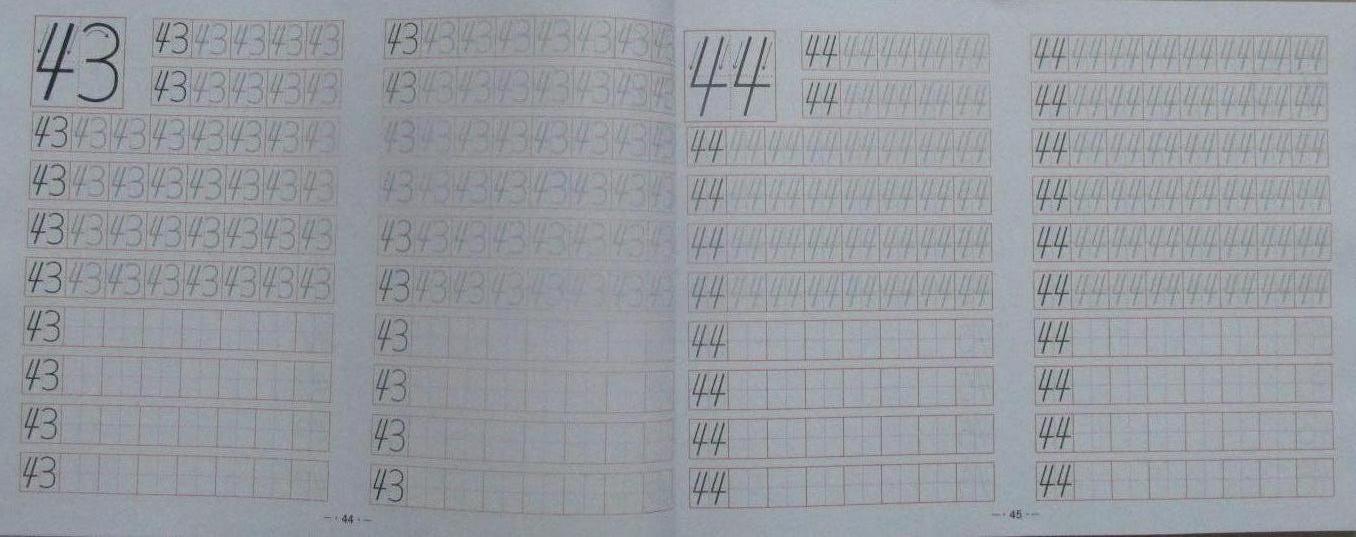 43
43 43 43 43 43
43 43 43 43 43
43 43 43 43 43 43 43 43
43 43 43 43 43 43 43 43
43 43 43 43 43 43 43 43
43 43 43 43 43 43 43 43
43
43
43
43
43 43 43 43 43 43 43 43
43 43 43 43 43 43 43 43
43 43 43 43 43 43 43 43
43 43 43 43 43 43 43 43
43 43 43 43 43 43 43 43
43 43 43 43 43 43 43 43
43
43
43
43
— · 44 · —
44
44 44 44 44 44
44 44 44 44 44
44 44 44 44 44 44 44 44
44 44 44 44 44 44 44 44
44 44 44 44 44 44 44 44
44 44 44 44 44 44 44 44
44
44
44
44
44 44 44 44 44 44 44 44
44 44 44 44 44 44 44 44
44 44 44 44 44 44 44 44
44 44 44 44 44 44 44 44
44 44 44 44 44 44 44 44
44 44 44 44 44 44 44 44
44
44
44
44
— · 45 · —